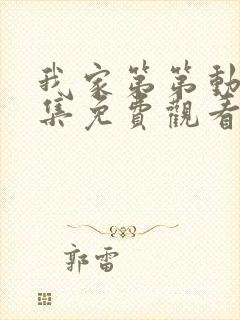 我家第第動
集免費觀看
郭雷